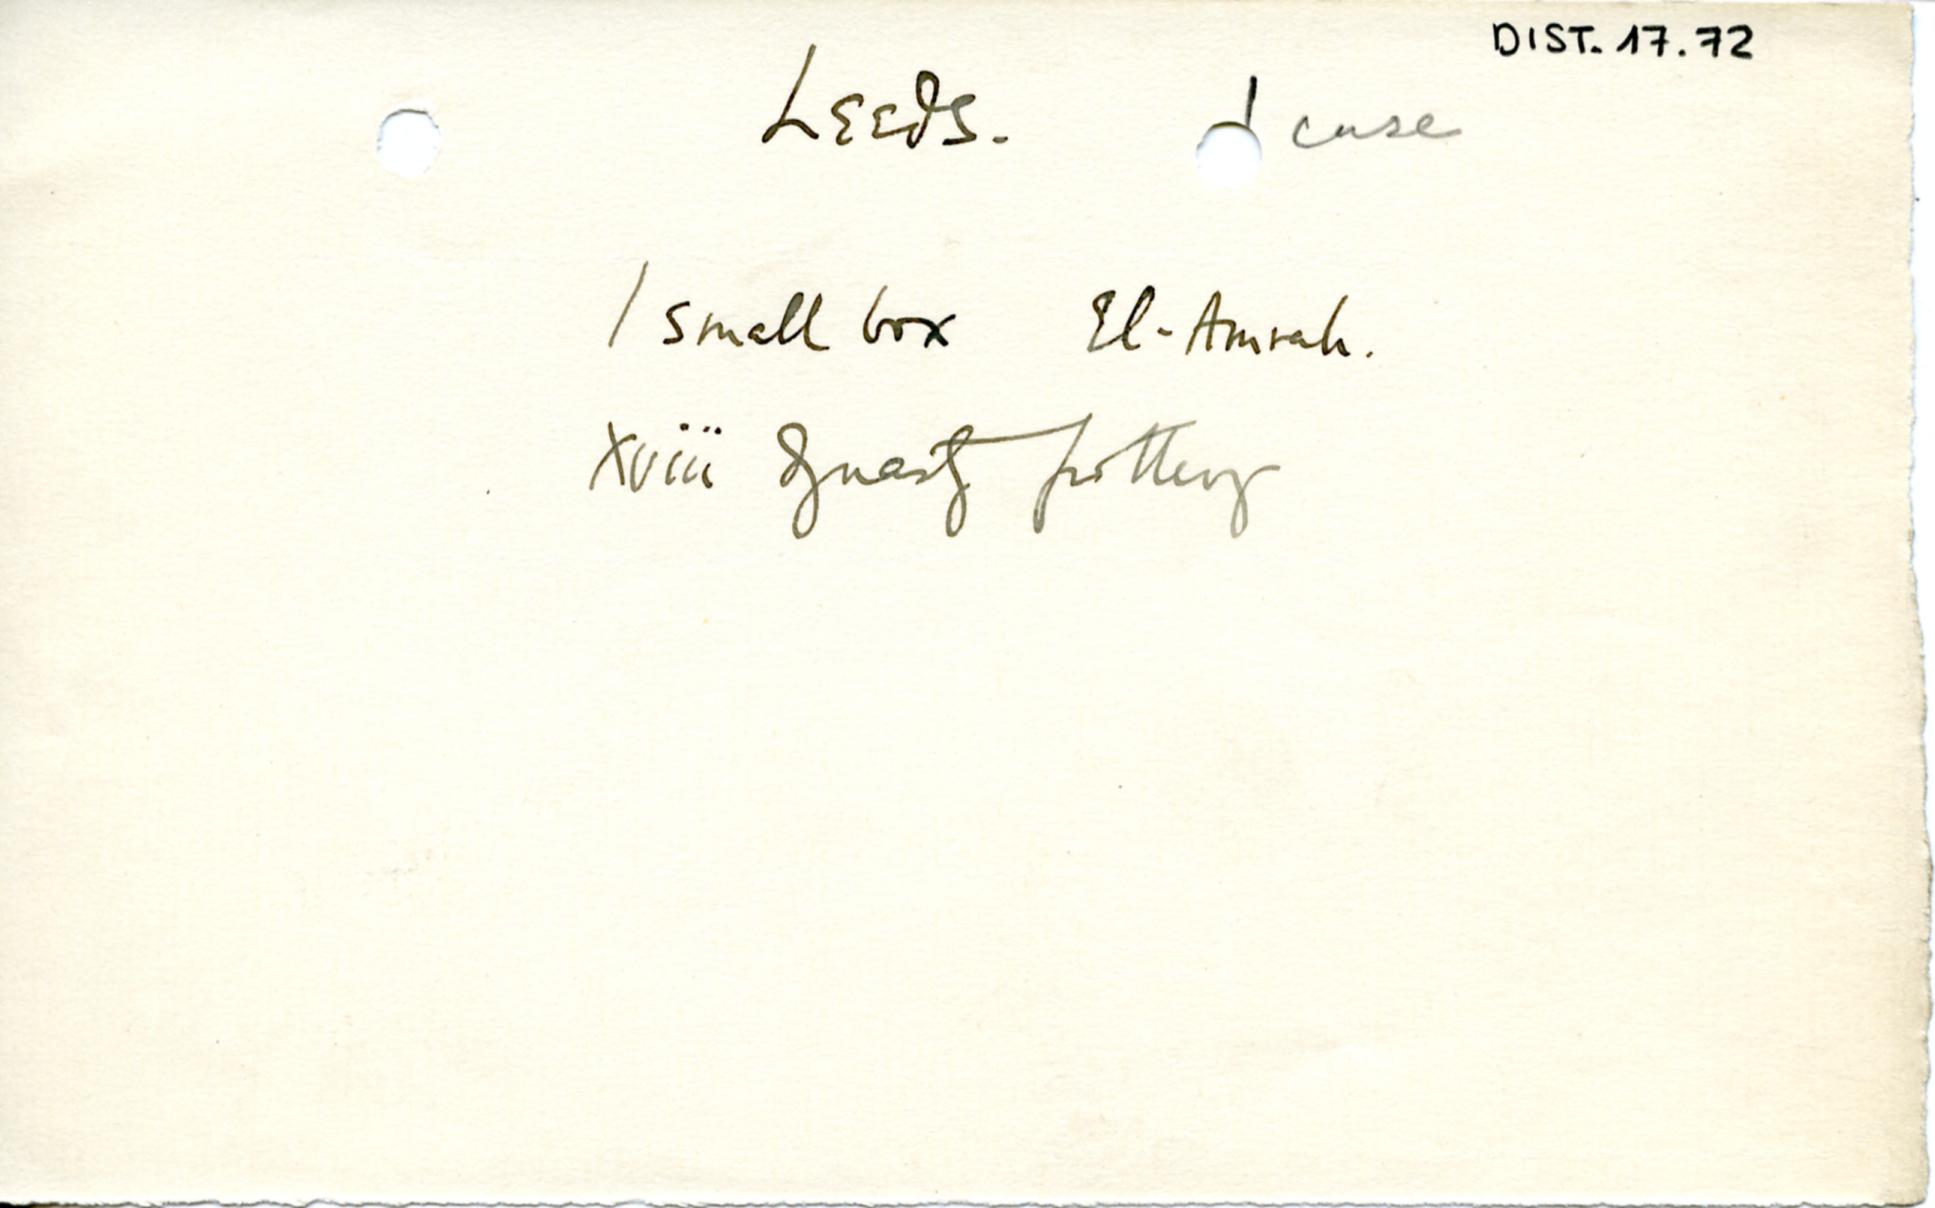 DIST. 17.72
Leeds. 1 case
1 small box El-Amrah.
xviii Dynasty pottery